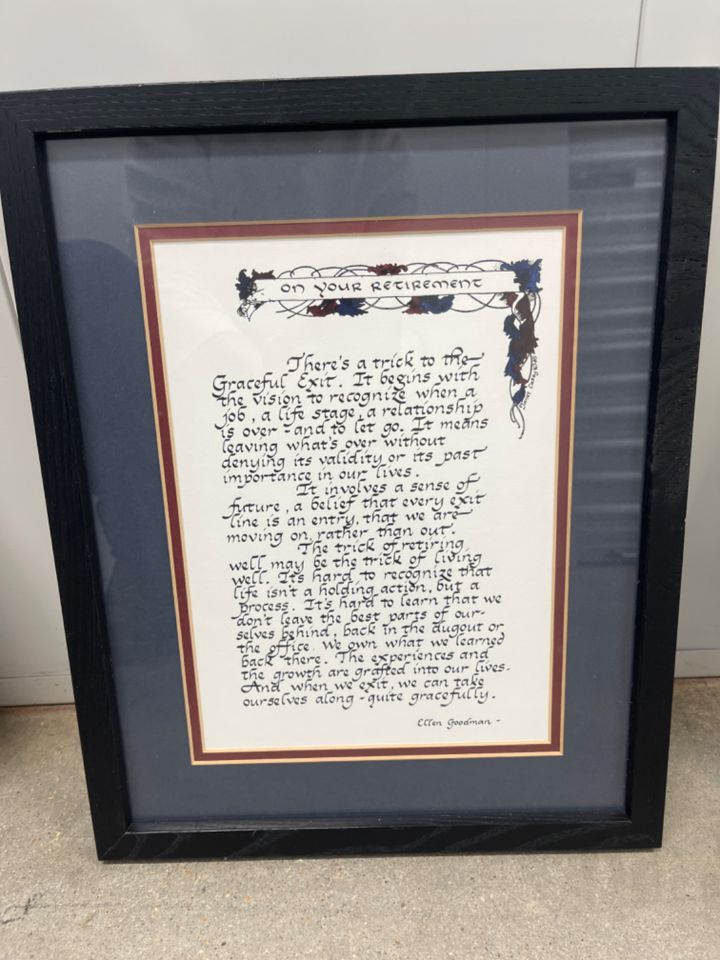 ON YOUR RETIREMENT
There's a trick to the
Graceful Exit. It begins with
the vision to recognize when a
job, a life stage, a relationship
is over - and to let go. It means
leaving what's over without
denying its validity or its past
importance in our lives.
It involves a sense of
future, a belief that every exit
line is an entry, that we are
moving on, rather than out.
The trick of retiring
well may be the trick of living
well. It's hard to recognize that
life isn't a holding action, but a
process. It's hard to learn that we
don't leave the best parts of our-
selves behind, back in the dugout or
the office. We own what we learned
back there. The experiences and
the growth are grafted into our lives.
And when we exit, we can take
ourselves along - quite gracefully.
Ellen Goodman -